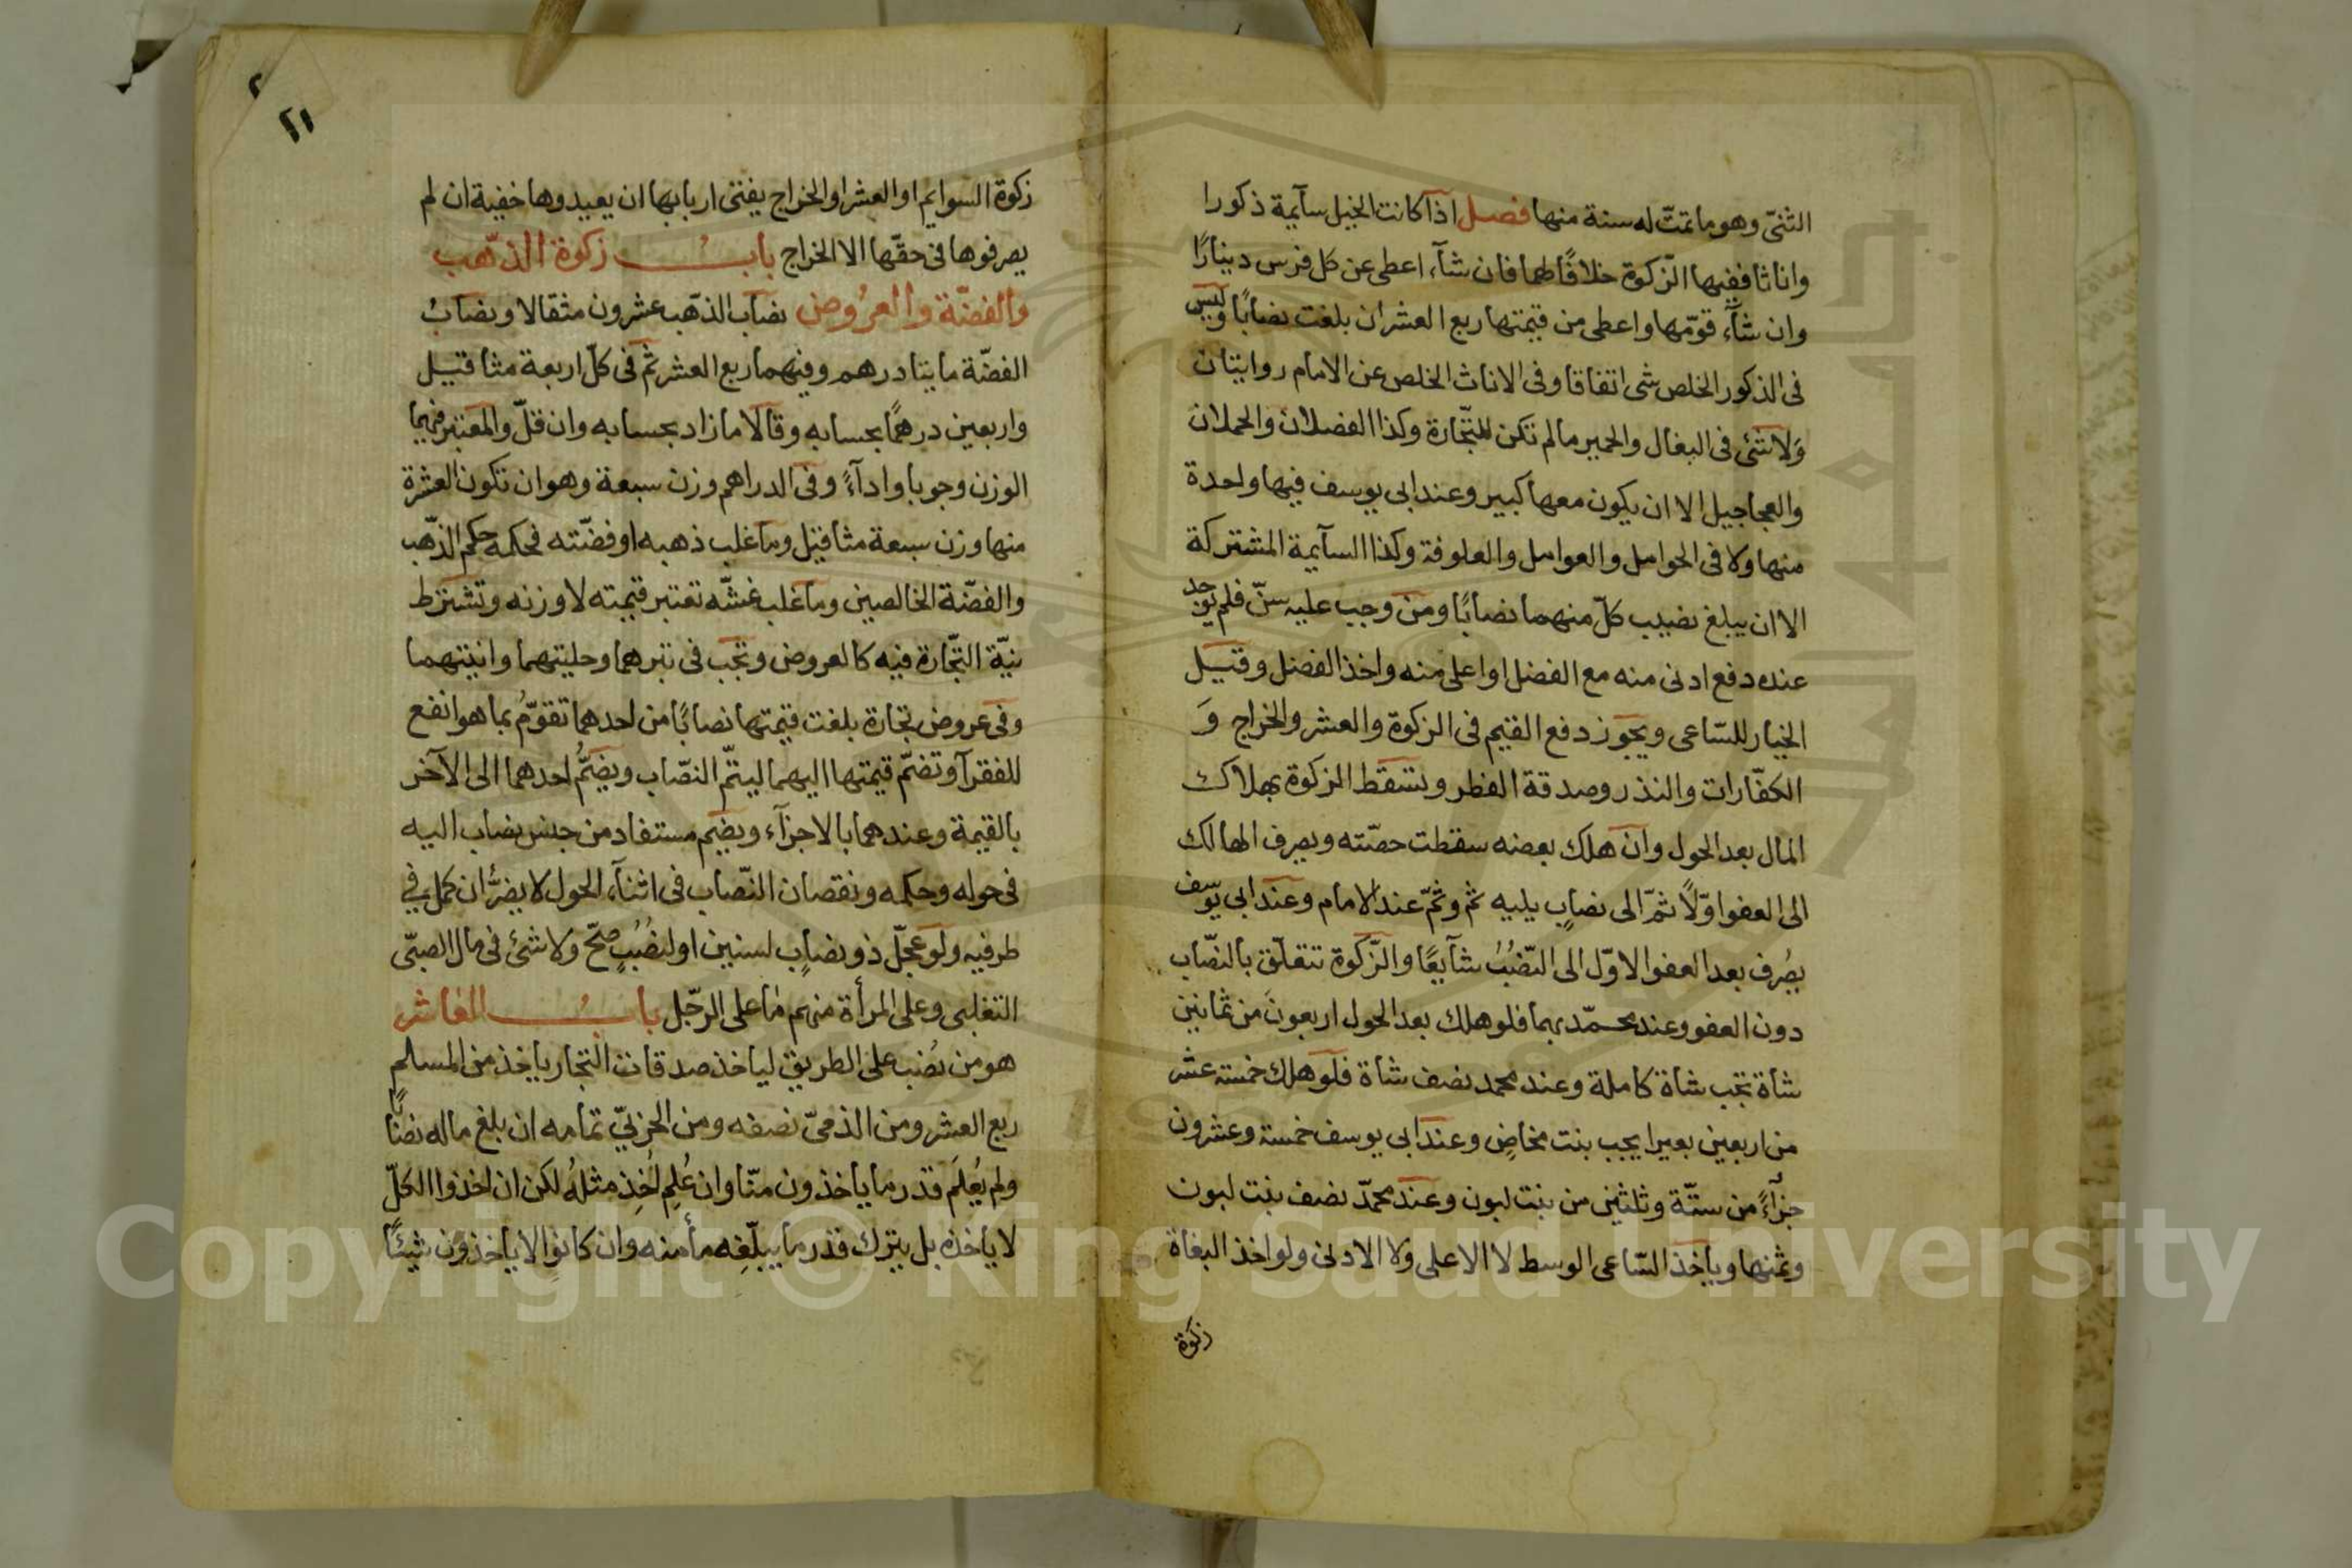 الثنىّ وهو ما تمتّ له سنة منها فصل اذا كانت الخيل سآيمة ذكورا
واناثا ففيها الزّكوة خلافًا لهما فان شآء اعطى عن كل فرس دينارًا
وان شآء قوّمها واعطى من قيمتها ربع العشران بلغت نصابًا وليس
فى الذكور الخلص شئ اتفاقا وفى الاناث الخلص عن الامام روايتان
وَلا شئ فى البغال والحمير مالم تكن للتّجارة وكذا الفصلان والحملان
والعجاجيل الا ان يكون معها كبير وعند ابى يوسف فيها واحدة
منها ولا فى الحوامل والعوامل والعلوفة وكذا السآيمة المشتركة
الا ان يبلغ نصيب كلّ منهما نصابًا ومن وجب عليه سنّ فلم يوجد
عنده دفع ادنى منه مع الفضل او اعلى منه واخذ الفضل وقيل
الخيار للسّاعى ويجوز دفع القيم فى الزكوة والعشر والخراج وَ
الكفّارات والنذر وصدقة الفطر وتسقط الزكوة بهلاك
المال بعد الحول وان هلك بعضه سقطت حصّته ويصرف الهالك
الى العفو اوّلاً ثمّ الى نصابٍ يليه ثم وثمّ عند الامام وعند ابى يوسف
يصُرف بعد العفو الاوّل الى النّصُبُ شآيعًا والزّكوة تتعلّق بالنّصاب
دون العفو وعند محمّد بهما فلو هلك بعد الحول اربعونَ من ثمانين
شاة تجب شاة كاملة وعند محمد نصف شاة فلو هلك خمسة عشر
من اربعين بعيرا يجب بنت مخاضٍ وعند ابى يوسف خمسة وعشرون
جزآءً من ستّة وثلثين من بنت لبون وعند محمّد نصف بنت لبون
وثمنها وياخذ السّاعى الوسط لا الاعلى ولا الادنى ولو اخذ البغاة
زكوة
٢
٢١
زكوة السوايم او العشر او الخراج يفتى اربابها ان يعيدوها خفية ان لم
يصرفوها فى حقّها الا الخراج باب زكوة الذّهب
والفضّة والعرُوض نصاب الذّهب عشرون مثقالا ونصابُ
الفضّة مايتا درهم وفيهما ربع العشر ثمّ فى كلّ اربعة مثاقيل
واربعين درهمًا بحسابه وقالا ما زاد بحسابه وان قلّ والمعتبر فيهما
الوزن وجوبا وادآءً وفى الدراهم وزن سبعة وهو ان تكون العشرة
منها وزن سبعة مثاقيل وما غلب ذهبه او فضّته فحكمه حكم الذّهب
والفضّة الخالصين وما غلب غشّه تعتبر قيمته لا وزنه وتشترط
نيّة التّجارة فيه كالعروض وتجب فى تبرهما وحليتهما وانيتهما
وفى عروض تجارة بلغت قيمتها نصابًا من احدهما تقوّمُ بما هو انفع
للفقرآ وتضمّ قيمتها اليهما ليتمّ النّصاب ويضَمُّ احدهما الى الآخر
بالقيمة وعندهما بالاجزآء ويضم مستفاد من جنس نصاب اليه
فى حوله وحكمه ونقصان النّصاب فى اثنآء الحول لا يضرُّ ان كمل فى
طرفيه ولو عجّل ذو نصابٍ لسنين او لنصُبٍ صحّ ولا شئ فى مال الصبّى
التغلبى وعلى المرأة منهم ما على الرّجل باب العاشر
هو من نصُب على الطريق لياخذ صدقات التجار ياخذ من المسلم
ربع العشر ومن الذمىّ نصفه ومن الحربىّ تمامه ان بلغ ماله نصابًا
ولم يُعلَم قدر ما ياخذون منّا وان عُلِم اُخِذ مثلهُ لكن ان اخذوا الكلّ
لا ياخذه بل يترك قدر ما يبلّغِه مأمنه وان كانوا لا ياخذون شيئًا
Copyright © King Saud University